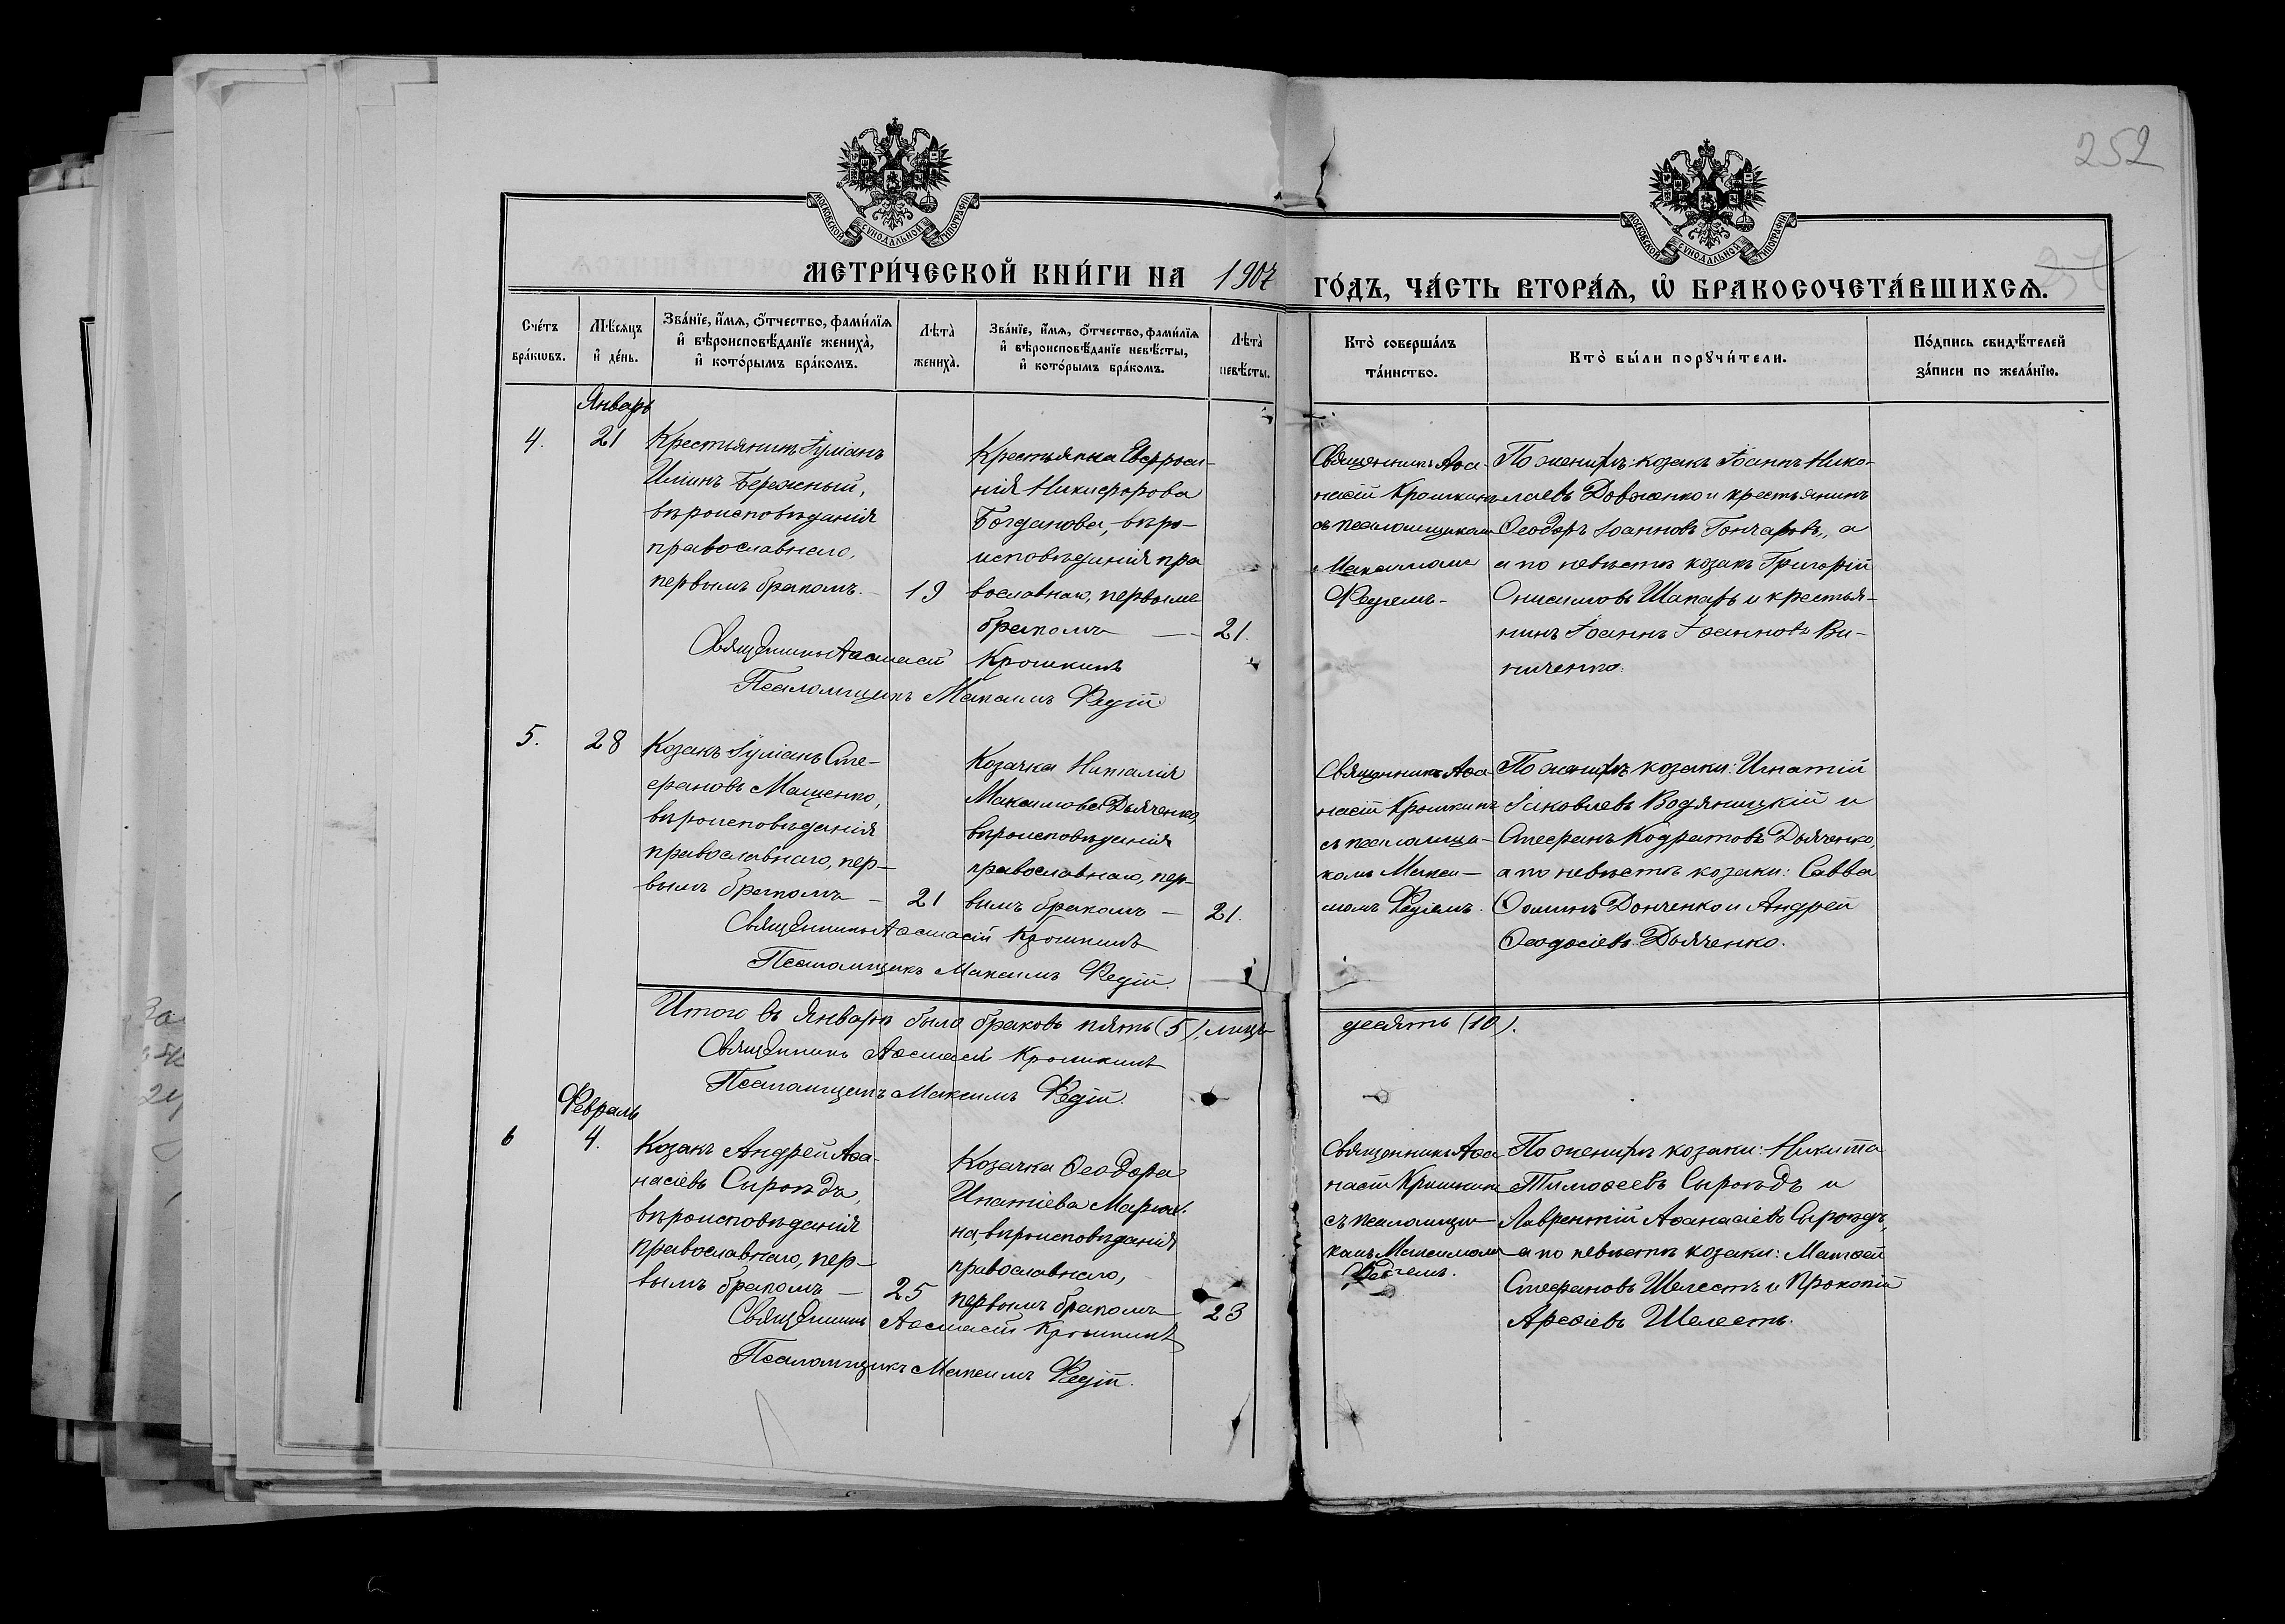 252
МОСКОВСКОЙ СУНОДАЛЬНОЙ ТИПОГРАФІИ
МОСКОВСКОЙ СУНОДАЛЬНОЙ ТИПОГРАФІИ
МЕТРИ́ЧЕСКОЙ КНИ́ГИ НА 1907 ГО́ДЪ, ЧА́СТЬ ВТОРА́Ѧ, Ѽ БРАКОСОЧЕТА́ВШИХСѦ.
Сче́тъ бра́кѡвъ.
Мѣ́сѧцъ и҆ де́нь.
Зва́нїе, и҆́мѧ, ѻ҆́тчество, фами́лїѧ и҆ вѣроисповѣ́данїе жениха̀, и҆ кото́рымъ бра́комъ.
Лѣта̀ жениха̀.
Зва́нїе, и҆́мѧ, ѻ҆́тчество, фами́лїѧ и҆ вѣроисповѣ́данїе невѣ́сты, и҆ кото́рымъ бра́комъ.
Лѣта̀ невѣ́сты.
Кто̀ соверша́лъ та́инство.
Кто̀ бы́ли порꙋчи́тели.
По́дпись свидѣ́телей за́писи по жела́нїю.
Январь
4.
21
Крестьянинъ Іуліанъ
Иліинъ Бережный,
вѣроисповѣданія
православнаго,
первымъ бракомъ. -
19
Крестьянка Евфроси-
нія Никифорова
Богданова, вѣро-
исповѣданія пра
вославнаго, первымъ
бракомъ —
21.
Священникъ Аѳа-
насій Крошкинъ
съ псаломщикомъ
Максимомъ
Федіемъ-
По женихѣ: козакъ Іоаннъ Нико-
лаевъ Довженко и крестьянинъ
Ѳеодоръ Іоанновъ Гончаровъ, а
а по невѣстѣ козакъ Григорій
Онисимовъ Шапарь и крестья-
нинъ Іоаннъ Іоанновъ Ви-
ниченко.
Священникъ Аѳанасій Крошкинъ
Псаломщикъ Максимъ Федій
5.
28
Козакъ Іуліанъ Сте-
фановъ Мащенко,
вѣроисповѣданія
православнаго, пер-
вымъ бракомъ -
21
Козачка Наталія
Максимова Дьяченко,
вѣроисповѣданія
православнаго, пер-
вымъ бракомъ —
21.
Священникъ Аѳа-
насій Крошкинъ
съ псаломщи-
комъ Макси-
момъ Федіемъ.
По женихѣ козаки: Игнатій
Іаковлевъ Водяницкій и
Стефанъ Кодратовъ Дьяченко,
а по невѣстѣ козаки: Савва
Ѳоминъ Донченко и Андрей
Ѳеодосіевъ Дьяченко.
Священникъ Аѳанасій Крошкинъ
Псаломщикъ Максимъ Федій.
Итого въ Январѣ было браковъ пять (5), лицъ десять (10).
Священникъ Аѳанасій Крошкинъ
Псаломщикъ Максимъ Федій.
Февраль
6
4.
Козакъ Андрей Аѳа-
насіевъ Сыроѣдъ,
вѣроисповѣданія
православнаго, пер-
вымъ бракомъ —
25
Козачка Ѳеодора
Игнатіева
на, вѣроисповѣданія
православнаго,
первымъ бракомъ
23
Священникъ Аѳа
насій Крошкинъ
съ псаломщи-
комъ Максимомъ
Федіемъ.
По женихѣ козаки: Никита
Тимоѳеевъ Сыроѣдъ и
Лаврентій Аѳанасіевъ Сыроѣдъ,
а по невѣстѣ козаки: Матѳей
Стефановъ Шелестъ и Прокопій
Шелестъ.
Священникъ Аѳанасій Крошкинъ
Псаломщикъ Максимъ Федій.